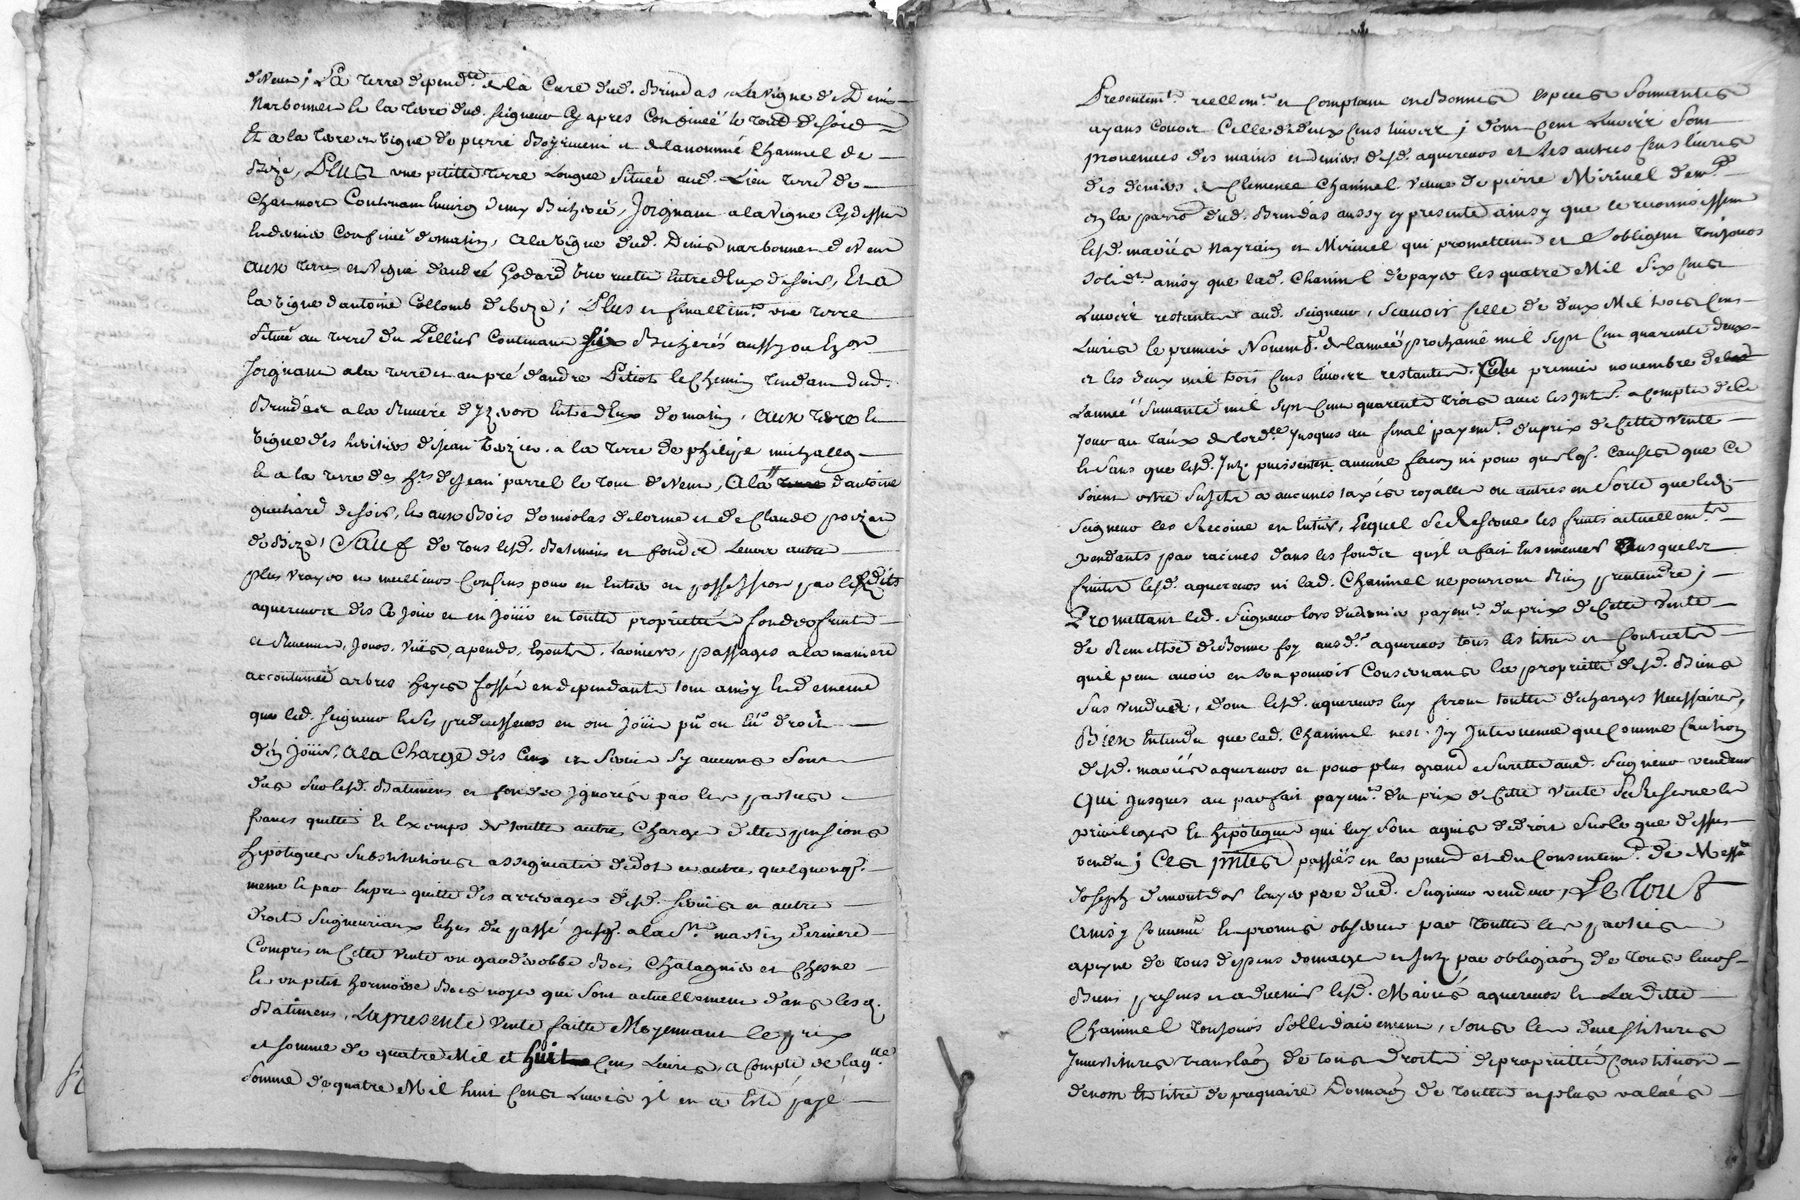 de Vent; La terre depend.te de la Cure dud. Brindas, La vigne de Denis
Narbonnet Et la terre dud. seigneur Cy apres Confinéé le tout de soir
Et a la terre et vigne de pierre et de la nommé Chaninel de
Bize, Plus une petitte terre Longue Situéé aud. Lieu terre de
Charmort Contenant Environ demy Bicheréé, Joignant a la vigne Cy dessus
En dernier Confinéé de matin, a la vigne dud. Denis narbonnet de Vent
aux terres et vigne d'andré Godard Une ruette Entredeux de soir, Et a
la vigne d'antoine Collomb de bize; Plus et finallem.t une terre
Situéé au terre. du Pellier Contenant six Bicherés aussy ou Env.on
Joignant a la terre et au pré d'andre Pitiot le Chemin tendant dud.
Brindas a la Riviere d'Izeron Entredeux de matin, aux terre Et
vigne des heritiers de Jean terzier a la terre de philipe
Et a la terre des h.rs de Jean parrel le tout de Vent, a la terre d'antoine
de soir, Et aux Bois de nicolas delorme et de Claude
de Bize, Sauf de tous lesd. Batimens et fonds Leurs autre
plus vrayes et meilleurs Confins pour en Entrer en possession par lesdits
aquereurs des Ce Jour et en Joüir en toutte proprietté fonds fruits
et Revenus, Jours, Vuës, apends, Egouts, Larmiers, passages a la maniere
accoutumée arbres hayes fossés en dependants tout ainsy Et de meme
que led. Seigneur Et Ses predecesseurs en ont Joüi pû ou Eû droit
d'en Joüir, a la Charge des Cens et Servis Sy aucuns Sont
dus Sur lesd. Batimens et fonds Ignorés par les parties
francs quitte Et Exempts de toutte autres Charges dette pensions
hipoteques Substitutions assignation de dot et autres quelquonqs.
meme Et par Exprès quitte des arrerages desd. Servis et autre
droits Seigneuriaux Echus du passé Jusq. a la S.t martin derniere
Compris en Cette Vente un garderobbe Bois Chatagnier et Chesne
Et un petit Bois noyer qui sont actuellement dans lesd.
Batimens, La presente Vente faitte Moyennant le prix
et somme de quatre Mil et huit Cens Livres, a Compte de laq.lle
Somme de quatre Mil huit Cens Livres il en a Esté payé
Presentem.t reellem.t et Comptant en Bonnes especes Sonnantes
ayans Cours Celle de deux Cens Livres; dont Cent Livres Sont
provenues des mains et deniers desd. aquereurs et les autres Cens livres
des deniers de Clemence Chaninel Veuve de pierre Mirivel dem.te
en la parr.e dud. Brindas aussy cy presente ainsy que le reconnoissent
lesd. mariés Nayrain et Mirivel qui promettent et S'obligent toujours
Solid.t ainsy que lad. Chaninel de payer les quatre Mil Six Cens
Livres restantes aud. Seigneur, Scavoir Celle de deux Mil trois Cens
Livres le premier Novem.b. de l'annéé prochaine mil Sept Cens quarente deux
et les deux mil trois Cens livres restantes, Celle premier novembre de
L'annéé Suivante mil Sept Cens quarente trois avec les Int.ts a compter de Ce
Jour au taux de lord.ce Jusques au final payem.t du prix de Cette Vente
Et Sans que lesd. Int. puissent en aucune façon ni pour quelq. Causes que Ce
soient etre Sujets a aucunes taxes royalles ou autres en Sorte que led.
Seigneur les Recoive en Entier, Lequel Se Reserve les fruits actuellem.t
pendants par racines dans les fonds qu'il a fait Ensemencer Ausquels
fruits lesd. aquereurs ni lad. Chaninel ne pourront Rien pretendre;
Promettant led. Seigneur lors du dernier payem.t du prix de Cette Vente
de Remettre de Bonne foy ausd.s aquereurs tous les titres et Contracts
qu'il peut avoir en Son pouvoir Conservans la proprietté desd. Biens
Sus vendus, dont lesd. aquereurs luy feront touttes decharges necessaires,
Bien Entendu que lad. Chaninel nest Icy Intervenue que Comme Caution
desd. mariés aquereurs et pour plus grand Suretté aud. Seigneur vendeur
Qui Jusques au parfait payem.t du prix de Cette Vente Se Reserve les
privileges Et hipoteque qui luy Sont aquis de droit Sur le que dessus
vendu; Ces pntes passéés en la pnce et du Consentem.t de Mess.re
Joseph demontdor Ecuyer pere dud. Seigneur vendeur, Le Tout
ainsy Convenu Et promis observer par toutte les parties
a peyne de tous depens domages et Int. par obligaôn de tous leurs
Biens presens et a venir lesd. Mariés aquereurs Et Laditte
Chaninel toujours Sollidairement, Sous les devestitures
Investitures translaôn de tous Droits de proprietté Constitution
de nom Et titre de precaire Donnaôn de touttes et plus valués